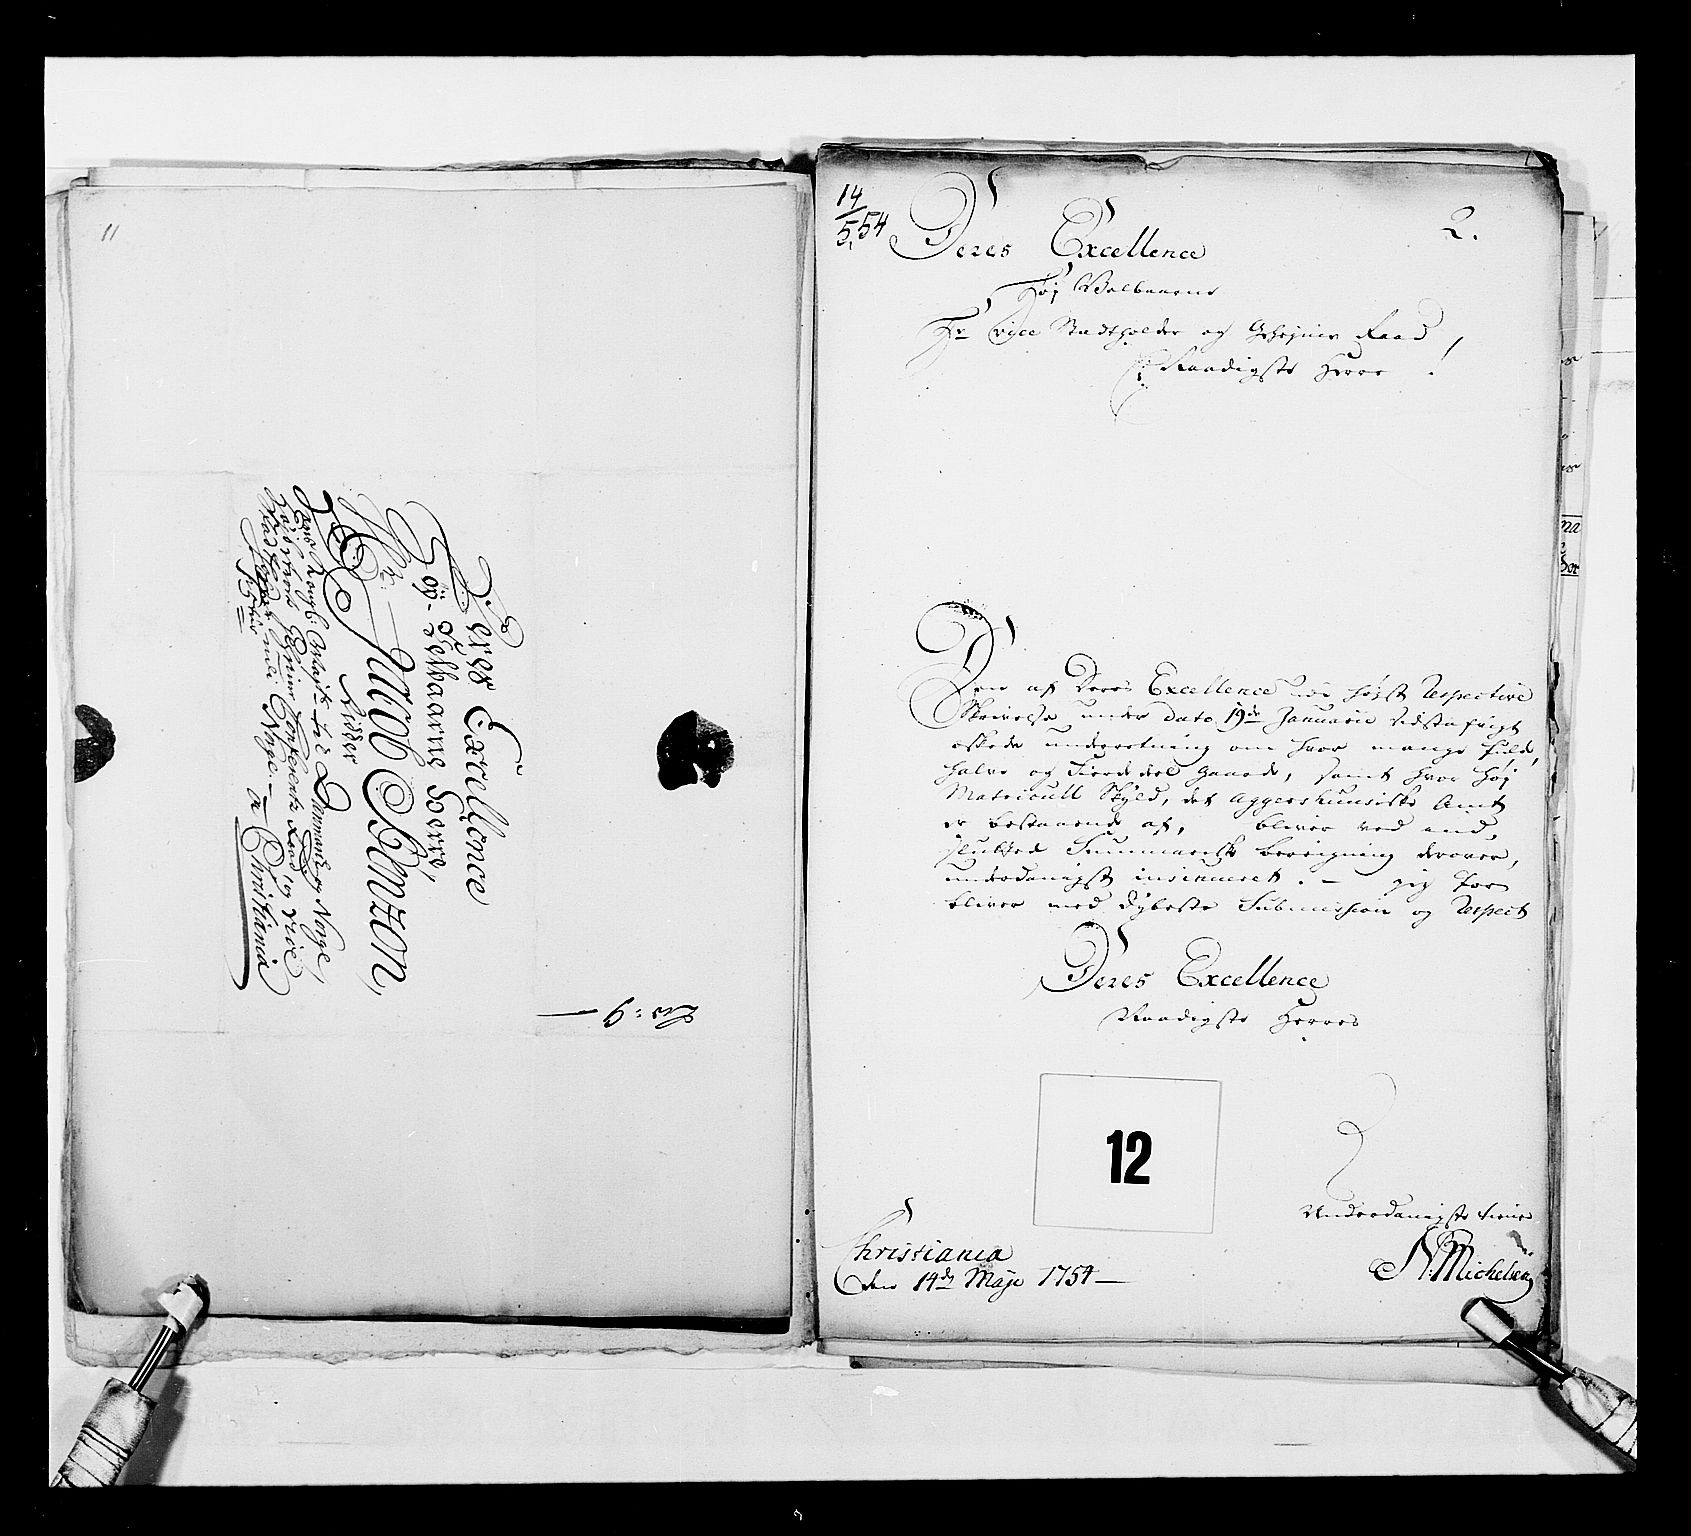 11
Deres Excellence
Høy og Velbaarne Herre,
Hr: Jacob Benzon
Ridder
Hans Kongl: Mayts: til Danmark og Norge,
Høybetroede Geheime Conferentz Raad og Vice
Stadtholder udi Norge —
à Christiania
No: 9 —
14/5. 54
2.
Deres Excellence
Høj Velbaarne
Hr Vice Stadtholder og Gehejme Raad,
Naadigste Herre!
Den af Deres Excellence ved høyst respective
Skrivelse under dato 19de Januarii sidst
æskede underretning om hvor mange fulde,
halve og Fierdedel Gaarde, samt hvor høj
Matricull Skyld, det Aggershuusiske Amt
er bestaaende af, bliver ved ind-
sluttede Summariske beregning derover,
underdanigst insinueret. — Jeg
bliver med dybeste Submission og respect
Deres Excellence
Naadigste Herres
12
Underdanigste tiener
N. Michelsen
Christiania
den 14de Maji 1754 —